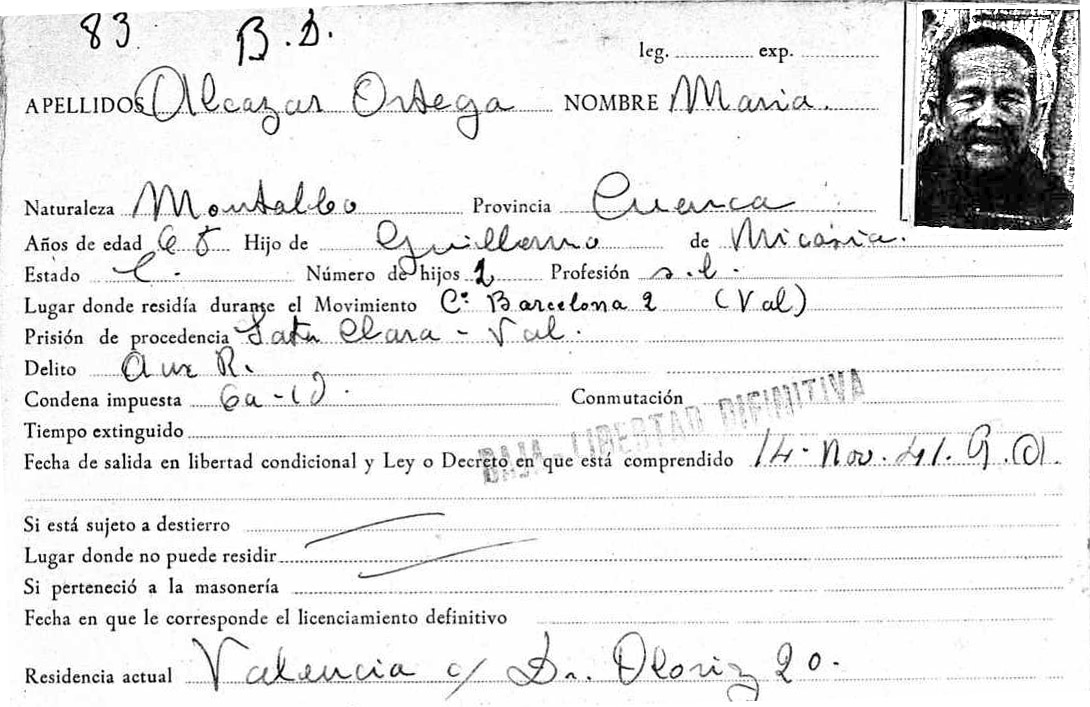 83 B.D.
leg. exp.
APELLIDOS Alcazar Ortega NOMBRE Maria.
Naturaleza Montalbo Provincia Cuenca
Años de edad 65 Hijo de Guillermo de Micaria.
Estado C. Número de hijos 2 Profesión s.l.
Lugar donde residía durante el Movimiento C. Barcelona 2 (Val)
Prisión de procedencia Santa Clara - Val.
Delito Aux R.
Condena impuesta 6a-1d. Conmutación
BAJA - LIBERTAD DIFINITIVA
Tiempo extinguido
Fecha de salida en libertad condicional y Ley o Decreto en que está comprendido 14. Nov. 41.
Si está sujeto a destierro
Lugar donde no puede residir
Si perteneció a la masonería
Fecha en que le corresponde el licenciamiento definitivo
Residencia actual Valencia c/ Dr. Oloriz 20.